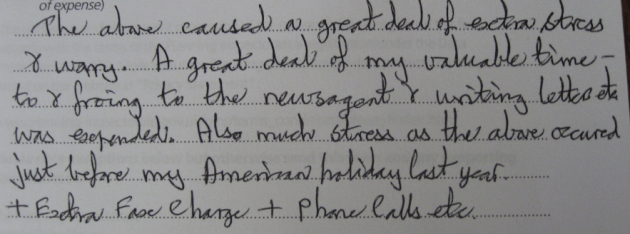 of expense)
The above caused a great deal of extra stress
& worry. A great deal of my valuable time -
to & froing to the newsagent & writing letters etc
was expended. Also much stress as the above occured
just before my American holiday last year.
+ Extra Fax Charge + Phone Calls etc.